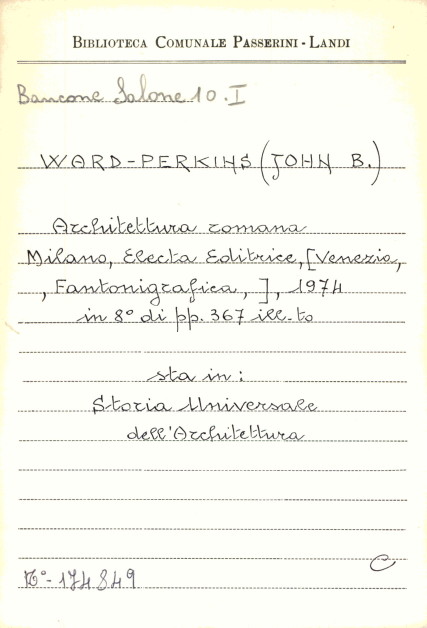 BIBLIOTECA COMUNALE PASSERINI - LANDI
Bancone Salone 10. I
WARD-PERKINS (JOHN B.)
Architettura romana
Milano, Electa Editrice, [Venezia,
, Fantonigrafica, ], 1974
in 8° di pp. 367 ill-to
sta in:
Storia Universale
dell'Architettura
C
174849